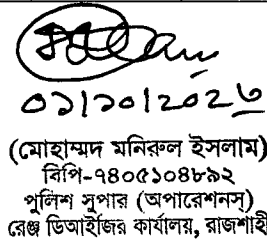 ০১/১০/২০২৩
(মোহাম্মদ মনিরুল ইসলাম)
বিপি-৭৪০৫১০৪৮৯২
পুলিশ সুপার (অপারেশনস্)
রেঞ্জ ডিআইজির কার্যালয়, রাজশাহী